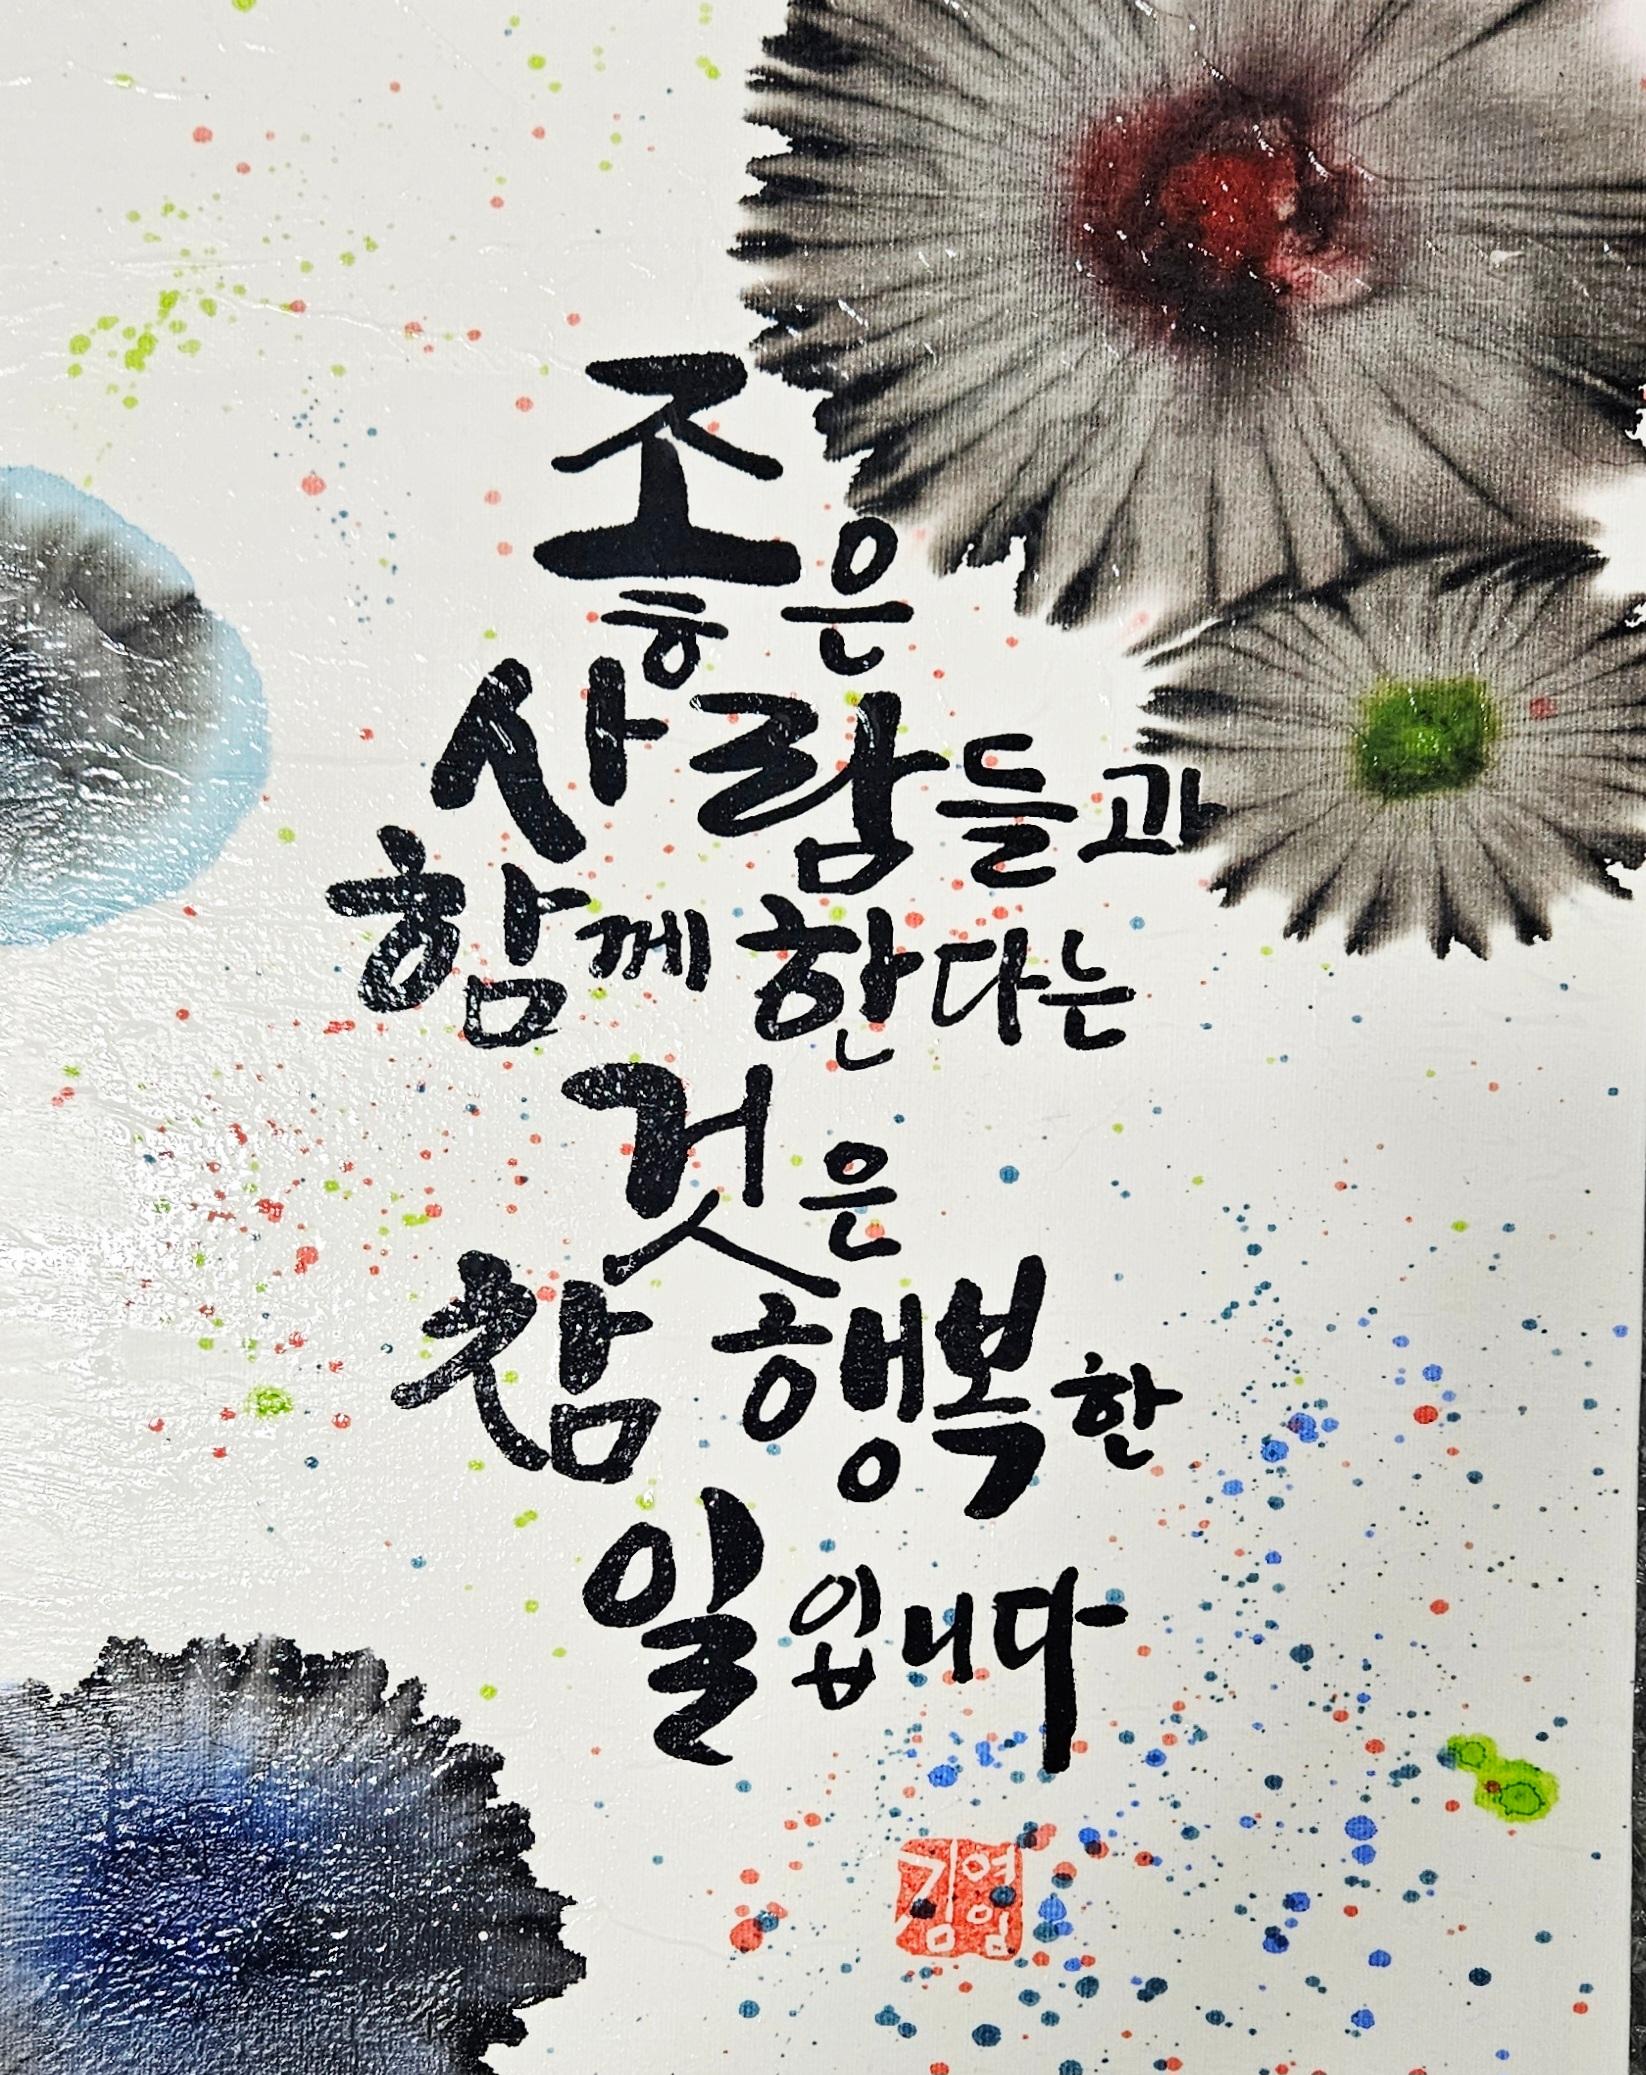 좋은
사람들과
함께 한다는
것은
참 행복한
일입니다
김영임